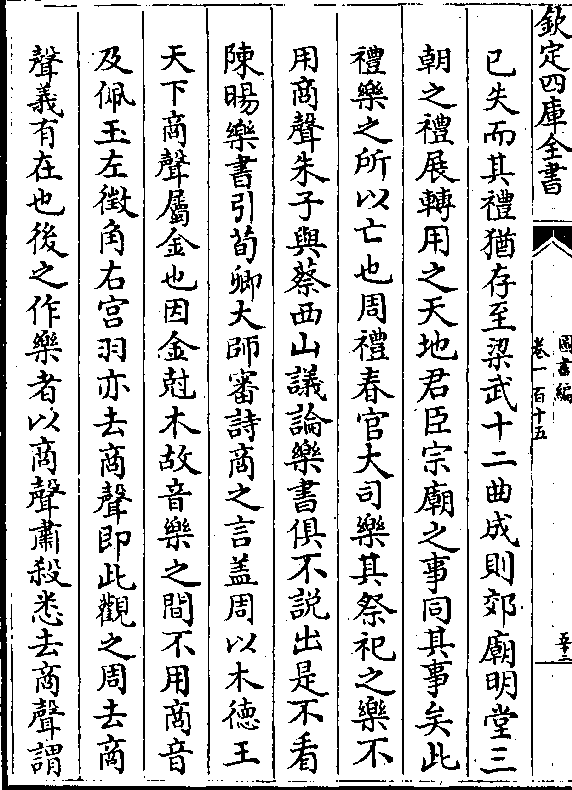 欽定四庫全書
圖書編
卷一百十五
五十二
已失而其禮猶存至梁武十二曲成則郊廟明堂三
朝之禮展轉用之天地君臣宗廟之事同其事矣此
禮樂之所以亡也周禮春官大司樂其祭祀之樂不
用商聲朱子與蔡西山議論樂書俱不説出是不看
陳暘樂書引荀卿大師審詩商之言盖周以木德王
天下商聲屬金也因金尅木故音樂之間不用商音
及佩玉左徵角右宫羽亦去商聲即此觀之周去商
聲義有在也後之作樂者以商聲肅殺悉去商聲謂